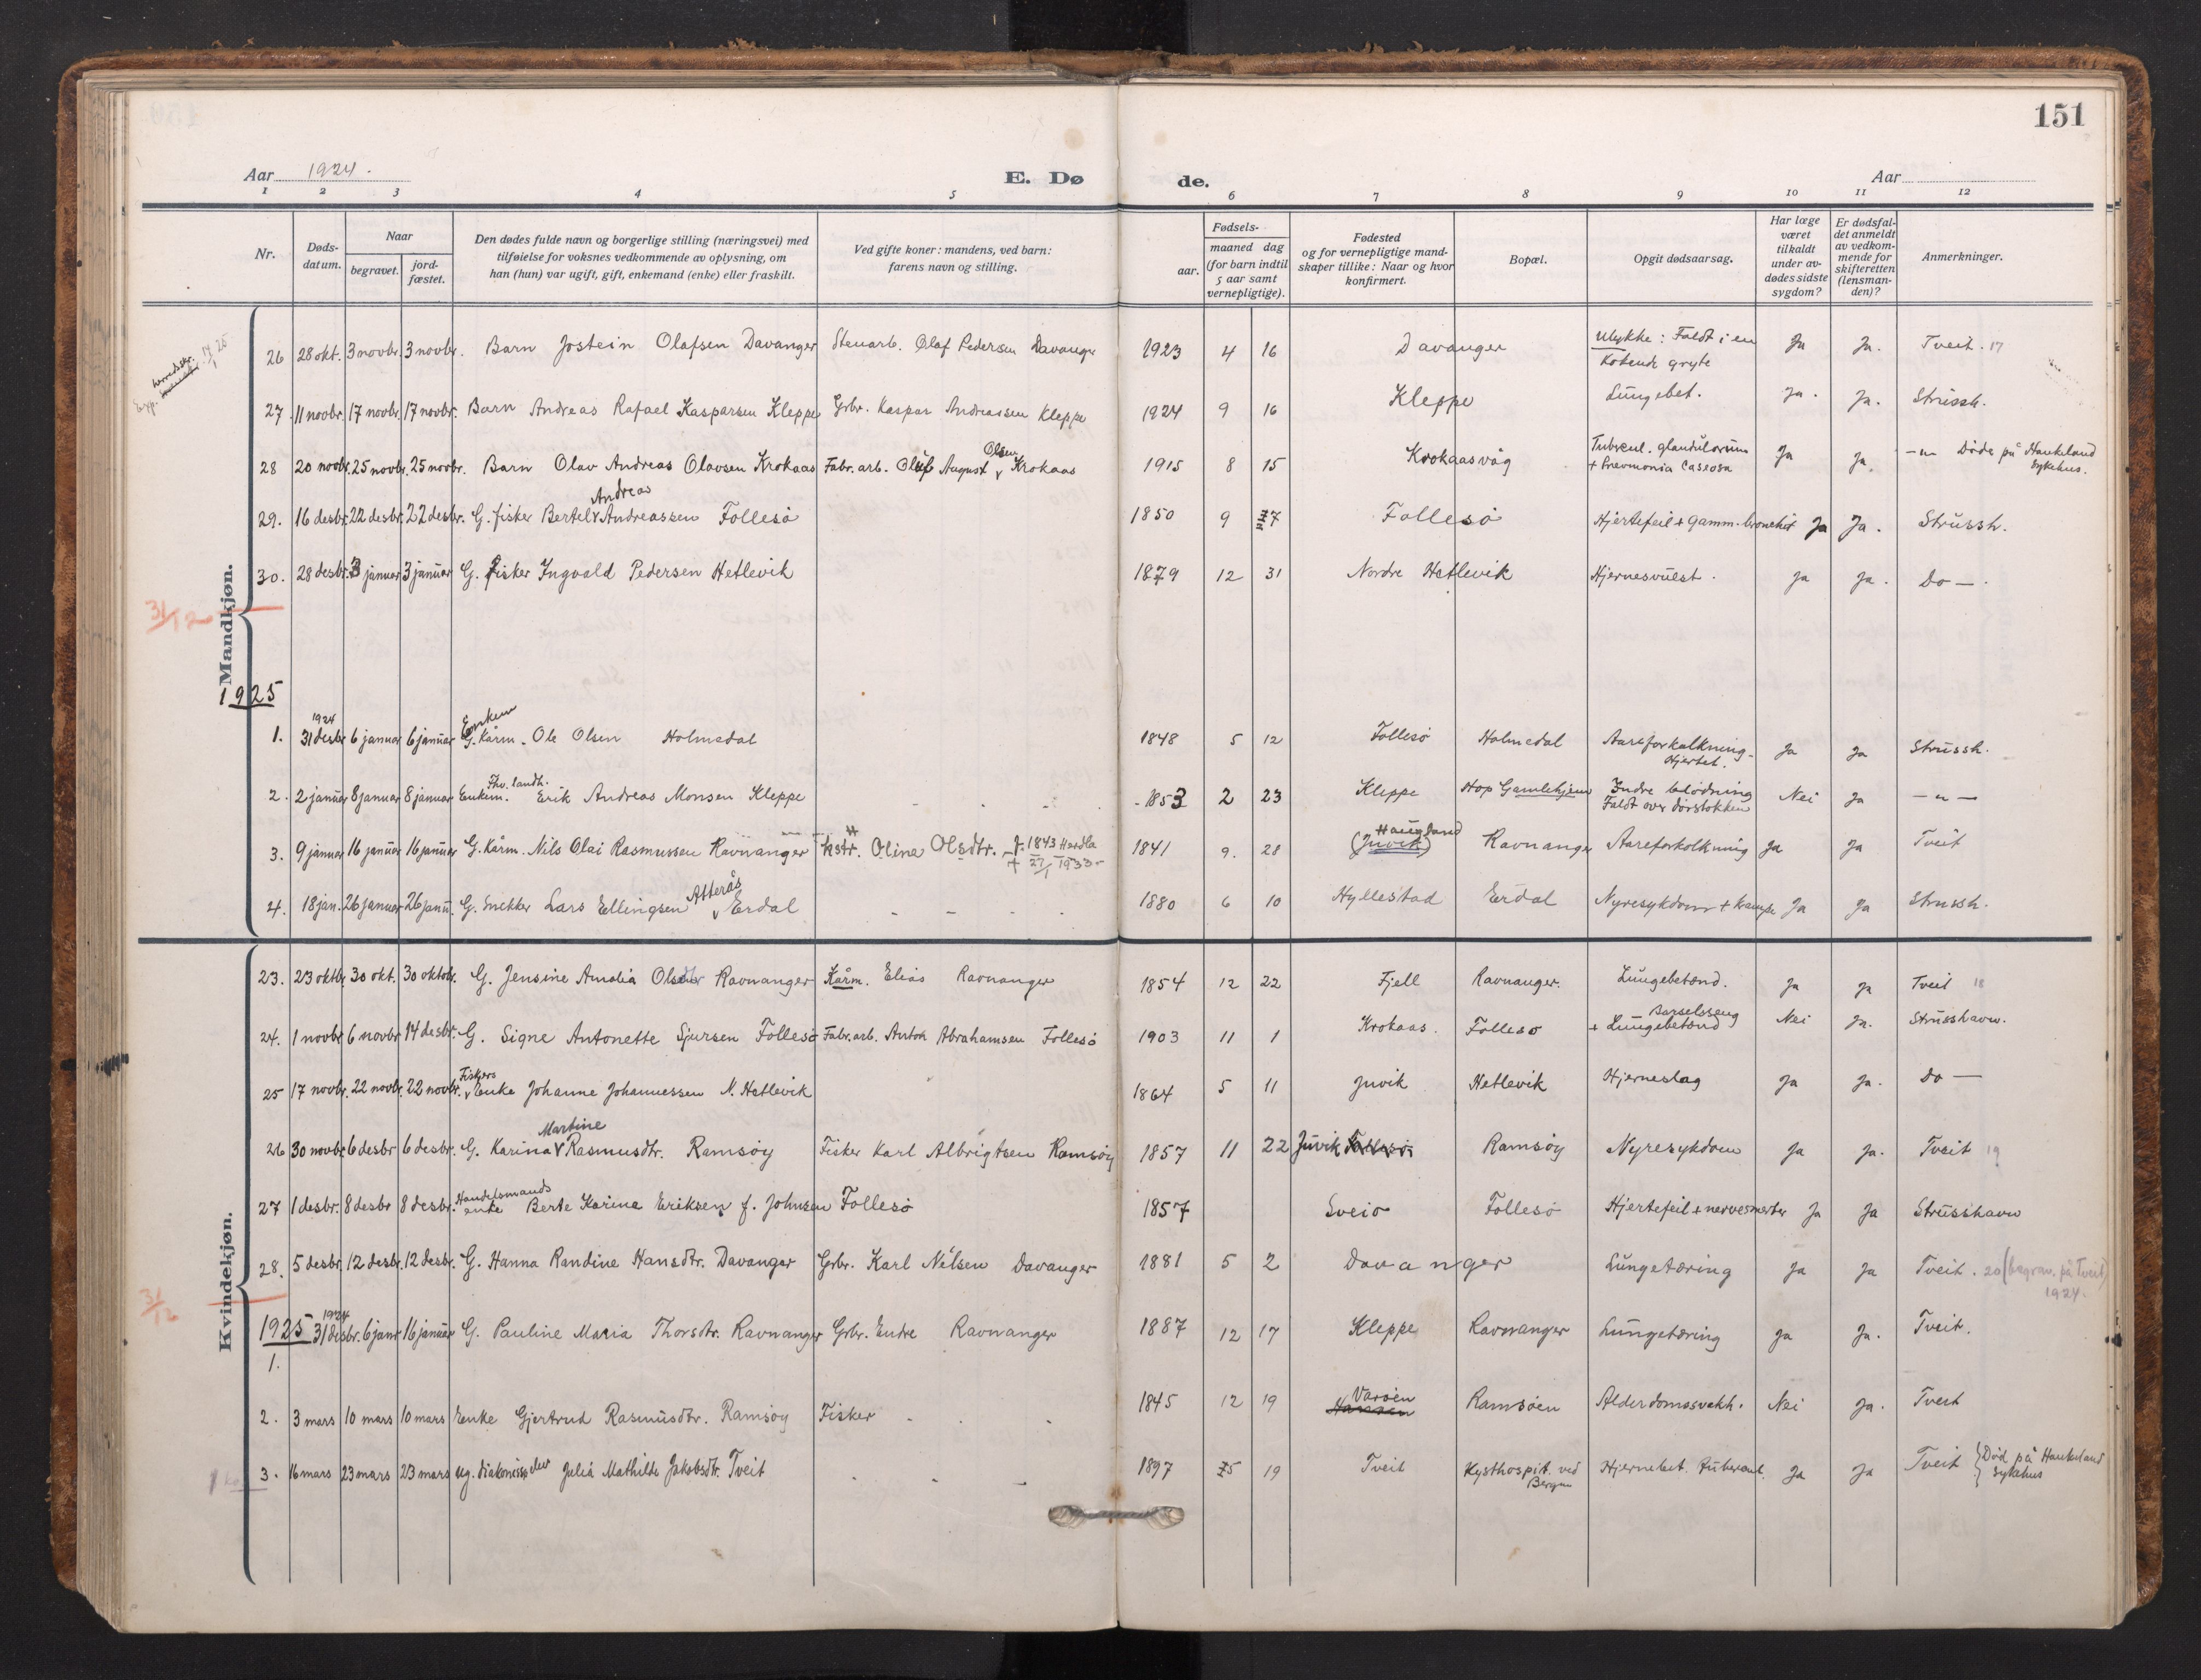 151
Aar 1924.
E. Dø de.
Aar
1 2 3 4 5 6 7 8 9 10 11 12
Nr.
Døds-datum.
Naar
begravet.
jord-fæstet.
Den dødes fulde navn og borgerlige stilling (næringsvei) med
tilføielse for voksnes vedkommende av oplysning, om
han (hun) var ugift, gift, enkemand (enke) eller fraskilt.
Ved gifte koner: mandens, ved barn:
farens navn og stilling.
Fødsels-
aar.
maaned dag
(for barn indtil
5 aar samt
vernepligtige).
Fødested
og for vernepligtige mand-
skaper tillike: Naar og hvor
konfirmert.
Bopæl.
Opgit dødsaarsag.
Har læge
været
tilkaldt
under av-
dødes sidste
sygdom?
Er dødsfal-
det anmeldt
av vedkom-
mende for
skifteretten
(lensman-
den)?
Anmerkninger.
Mandkjøn.
26 28 okt. 3 novbr. 3 novbr. Barn Jostein Olafsen Davanger Stenarb. Olaf Pedersen Davanger 1923 4 16 Davanger Ulykke: Faldt i en kokende gryte Ja Ja. Tveit. 17
27. 11 novbr. 17 novbr. 17 novbr. Barn Andreas Rafael Kasparsen Kleppe Grbr. Kaspar Andreassen Kleppe 1924 9 16 Kleppe Lungebet. Ja. Ja. Strussh.
28 20 novbr. 25 novbr. 25 novbr. Barn Olav Andreas Olavsen Krokaas Fabr. arb. Oluf August Olsen Krokaas 1915 8 15 Krokaasvåg Tubercul. glandularum + Pnevmonia caseosa Ja Ja. -"- Døde på Haukeland Sykehus.
29. 16 desbr. 22 desbr. 22 desbr. G. fisker Bertel Andreas Andreassen Follesø 1850 9 27 Follesø Hjertefeil + gamm. bronchit Ja Ja. Strussh.
30. 28 desbr. 3 januar 3 januar G. Fisker Ingvald Pedersen Hetlevik 1879 12 31 Nordre Hetlevik Hjernesvulst. Ja Ja. Do —.
31/12
1925
1. 1924 31 desbr 6 januar 6 januar Enkem G. Kårm. Ole Olsen Holmedal 1848 5 12 Follesø Holmedal Aareforkalkning - Hjertet. Ja Ja Strussh.
2. 2 januar 8 januar 8 januar Enkem. Fhv. landh. Erik Andreas Monsen Kleppe - - - 1853 2 23 Kleppe Hop Gamlehjem Indre blødning Faldt over dørstokken Nei Ja -"-
3. 9 januar 16 januar 16 januar G. Kårm. Nils Olai Rasmussen Ravnanger Kstr. Olina Olsdtr. f. 1843 Herdla + 27/1 1933 1841 9. 28 Haugland (Juvik) Ravnanger Aareforkalkning Ja Ja Tveit
4. 18 jan. 26 januar 26 janu. G. Snekker Lars Ellingsen Atterås Erdal - - - - 1880 6 10 Hyllestad Erdal Nyresykdom + krampe Ja Ja Strussh.
Kvindekjøn.
23. 23 oktbr 30 okt. 30 oktobr. G. Jensine Amalia Olsdtr Ravnanger Kårm. Elias Ravnanger 1854 12 22 Fjell Ravnanger. Lungebetænd. Ja Ja Tveit 18
24. 1 novbr 6 novbr 14 desbr. G. Signe Antonette Sjursen Follesø Fabr. arb. Anton Abrahamsen Follesø 1903 11 1 Krokaas. Follesø Barselsseng + Lungebetænd Nei Ja. Strusshavn.
25 17 novbr. 22 novbr. 22 novbr. Fiskers Enke Johanne Johannessen N. Hetlevik 1864 5 11 Juvik Hetlevik Hjerneslag Ja Ja. Do —
26 30 novbr. 6 desbr 6 desbr. G. Karina Martine Rasmusdtr. Ramsøy Fisker Karl Albrigtsen Ramsøy 1857 11 22 Juvik Follesø Ramsøy Nyresykdom Ja Ja. Tveit 19
27 1 desbr. 8 desbr 8 desbr. Handelsmands enke Berte Karina Eriksen f. Johnsen Follesø 1857 Sveio Follesø Hjertefeil + nervesmerter Ja Ja Strusshavn
28. 5 desbr. 12 desbr. 12 desbr. G. Hanna Randine Hansdtr. Davanger Grbr. Karl Nilsen Davanger 1881 5 2 Davanger Lungetæring Ja Ja Tveit. 20 (begrav. på Tveit) 1924.
31/12
1925
1. 1924 31 desbr. 6 janr 16 januar G. Pauline Maria Thorsdtr. Ravnanger Grbr. Endre Ravnanger 1887 12 17 Kleppe Ravnanger Lungetæring Ja Ja. Tveit.
2. 3 mars 10 mars 10 mars Enke Gjertrud Rasmusdtr. Ramsøy Fisker - - 1845 12 19 Varøen Ramsøen Alderdomssvakh. Nei Ja. Tveit
3. 16 mars 23 mars 23 mars ug. diakonisse Julia Mathilde Jakobsdtr. Tveit - - - 1897 5 19 Tveit Kysthospit. ved Bergen Hjernebet. Tubercul. Ja Ja Tveit {Død på Haukeland Sykehus